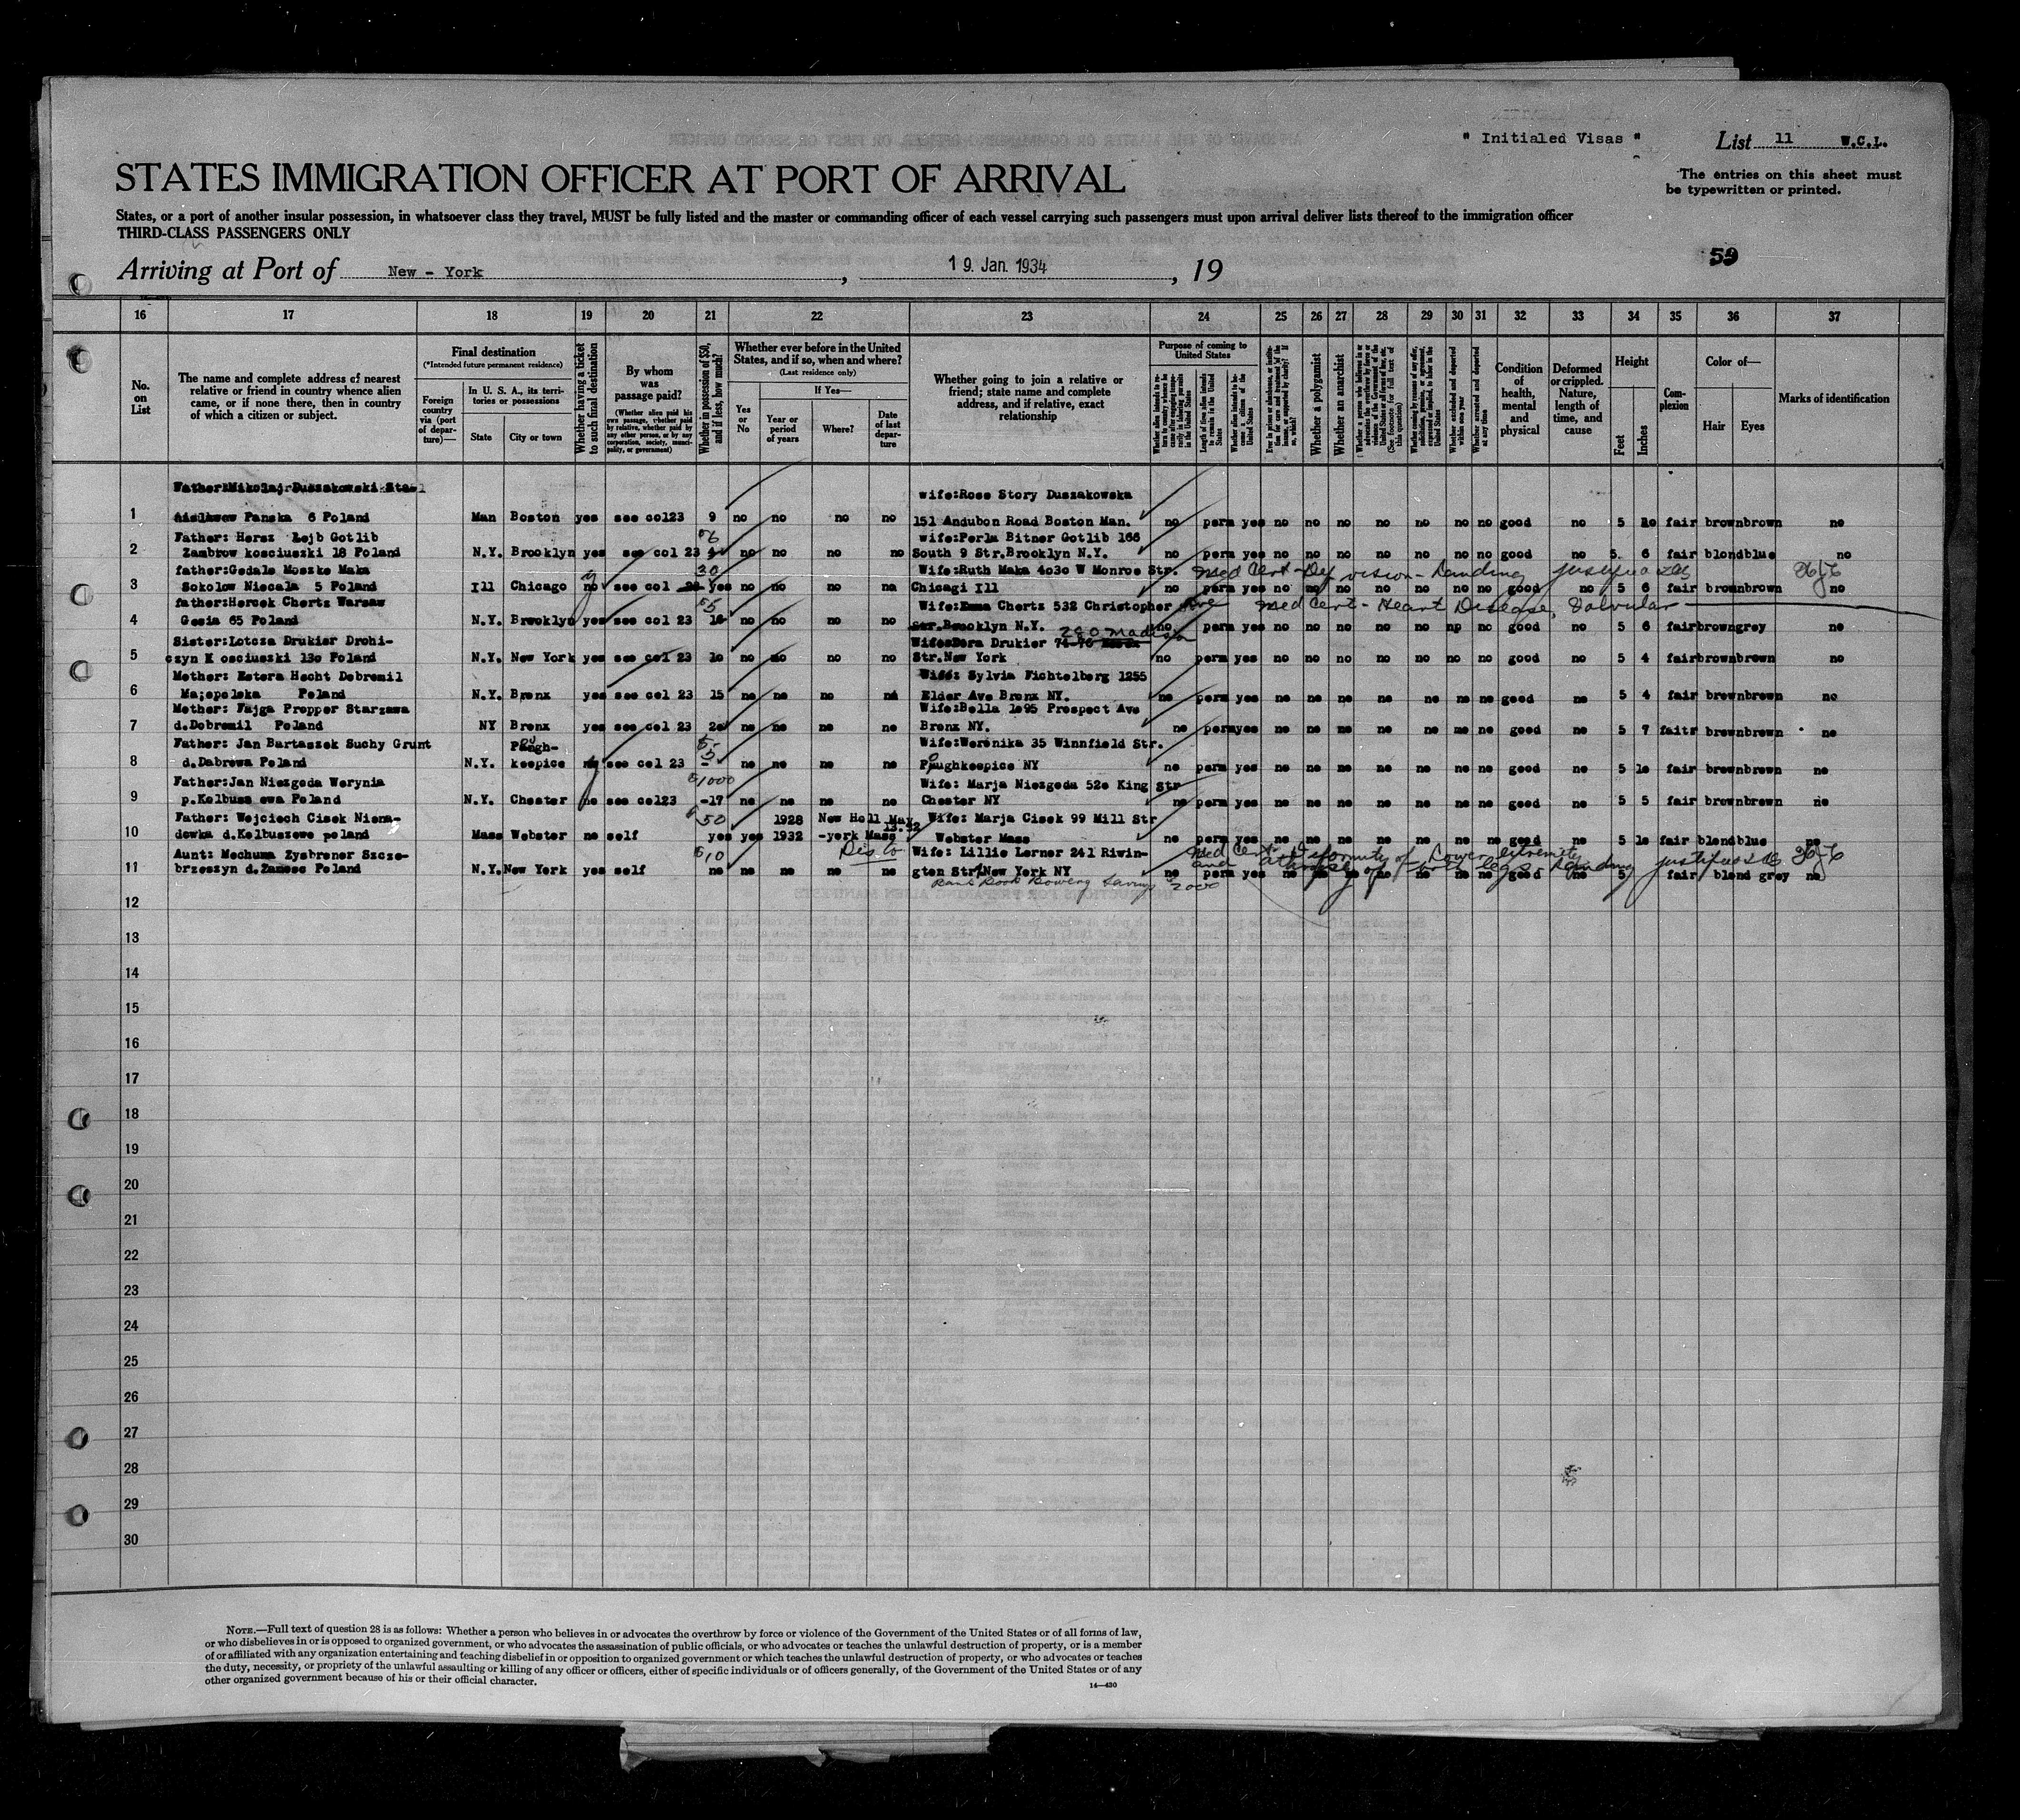 " Initialed Visas "
List 11 W.C.L.
STATES IMMIGRATION OFFICER AT PORT OF ARRIVAL
The entries on this sheet must
be typewritten or printed.
States, or a port of another insular possession, in whatsoever class they travel, MUST be fully listed and the master or commanding officer of each vessel carrying such passengers must upon arrival deliver lists thereof to the immigration officer
THIRD-CLASS PASSENGERS ONLY
59
Arriving at Port of New - York , 19. Jan. 1934 , 19
16 17 18 19 20 21 22 23 24 25 26 27 28 29 30 31 32 33 34 35 36 37
No. on List
The name and complete address of nearest
relative or friend in country whence alien
came, or if none there, then in country
of which a citizen or subject.
Final destination
(*Intended future permanent residence)
Foreign country via (port of departure)—
In U. S. A., its territories or possessions
State
City or town
Whether having a ticket to such final destination
By whom was passage paid?
(Whether alien paid his own passage, whether paid by relative, whether paid by any other person, or by any corporation, society, municipality, or government)
Whether in possession of $50, and if less, how much?
Whether ever before in the United
States, and if so, when and where?
(Last residence only)
Yes or No
If Yes—
Year or period of years
Where?
Date of last departure
Whether going to join a relative or
friend; state name and complete
address, and if relative, exact
relationship
Purpose of coming to United States
Whether a polygamist
Whether an anarchist
Condition of health, mental and physical
Deformed or crippled. Nature, length of time, and cause
Height
Feet
Inches
Complexion
Color of—
Hair
Eyes
Marks of identification
Father:Mikolaj Duszakowski
wife:Rose Story Duszakowska
1 Panska 6 Poland Man Boston yes see col23 9 no no no no 151 Andubon Road Boston Man. no perm yes no no no no no no no good no 5 10 fair brown brown no
Father: Hersz Lejb Gotlib $6 wife:Perla Bitner Gotlib 166
2 Zambrow kosciuszki 18 Poland N.Y. Brooklyn yes see col 23 no no no no South 9 Str.Brooklyn N.Y. no perm yes no no no no no no no good no 5. 6 fair blond blue no
father:Gedale Moszke Maka 30 Wife:Ruth Maka 4o3o W Monroe Str. Med Cert - Def vision - Landing
3 Sokolow Niecala 5 Poland Ill Chicago no see col yes no no no no Chicagi Ill no perm yes no no no no no no no good no 5 6 fair brown brown no
father:Hercek Chertz Warsaw Wife:Emma Chertz 532 Christopher Ave Med Cert - Heart Disease, Valvular
4 Gesia 65 Poland N.Y. Brooklyn yes see col 23 no no no no Str.Brooklyn N.Y. no perm yes no no no no no np no good no 5 6 fair brown grey no
Sister:Lotcza Drukier Drohi- 280 Madison
Wife:Dora Drukier
5 czyn K osciuszki 13o Poland N.Y. New York yes see col 23 1o no no no no Str.New York no perm yes no no no no no no no good no 5 4 fair brown brown no
Mother: Estera Hecht Dobromil Wife: Sylvia Fichtelberg 1255
6 Ma;opolska Poland N.Y. Bronx yes see col 23 15 no no no no Elder Ave Bronx NY. no perm yes no no no no no no no good no 5 4 fair brown brown no
Mother: Fajga Propper Starzawa Wife:Bella 1o95 Prospect Ave
7 d.Dobromil Poland NY Bronx yes see col 23 2o no no no no Bronx NY. no perm yes no no no no no no no good no 5 7 faitr brown brown no
Father: Jan Bartaszek Suchy Grunt Wife:Weronika 35 Winnfield Str.
8 d.Dabrowa Poland N.Y. Pough-keepice see col 23 no no no no Poughkeepice NY no perm yes no no no no no no no good no 5 1o fair brown brown no
Father:Jan Niezgoda Werynia $1000 Wife: Marja Niezgoda 52o King Str
9 p.Kolbusz owa Poland N.Y. Chester no see col23 -17 no no no no Chester NY no perm yes no no no no no no no good no 5 5 fair brown brown no
Father: Wojciech Cisek Niena- $50 1928 New Holl May 13.32 Wife: Marja Cisek 99 Mill Str
10 dowka d.Kolbuszowe poland Mass Webster no self yes yes 1932 -york Mass Webster Mass no perm yes no no no no no no no good no 5 1o fair blond blue no
Aunt: Mechuma Zysbrener Szcze- $10 Wife: Lillie Lerner 241 Riwin- Med Cert Deformity of Lower extremity
11 brzeszyn d.Zamosc Poland N.Y. New York yes self no no no no no gten Str New York NY no perm yes no no no no no no no good no 5 fair blond grey no
Bank Book Bowery Savings $2000
12
13
14
15
16
17
18
19
20
21
22
23
24
25
26
27
28
29
30
NOTE.—Full text of question 28 is as follows: Whether a person who believes in or advocates the overthrow by force or violence of the Government of the United States or of all forms of law,
or who disbelieves in or is opposed to organized government, or who advocates the assassination of public officials, or who advocates or teaches the unlawful destruction of property, or is a member
of or affiliated with any organization entertaining and teaching disbelief in or opposition to organized government or which teaches the unlawful destruction of property, or who advocates or teaches
the duty, necessity, or propriety of the unlawful assaulting or killing of any officer or officers, either of specific individuals or of officers generally, of the Government of the United States or of any
other organized government because of his or their official character.
14—430